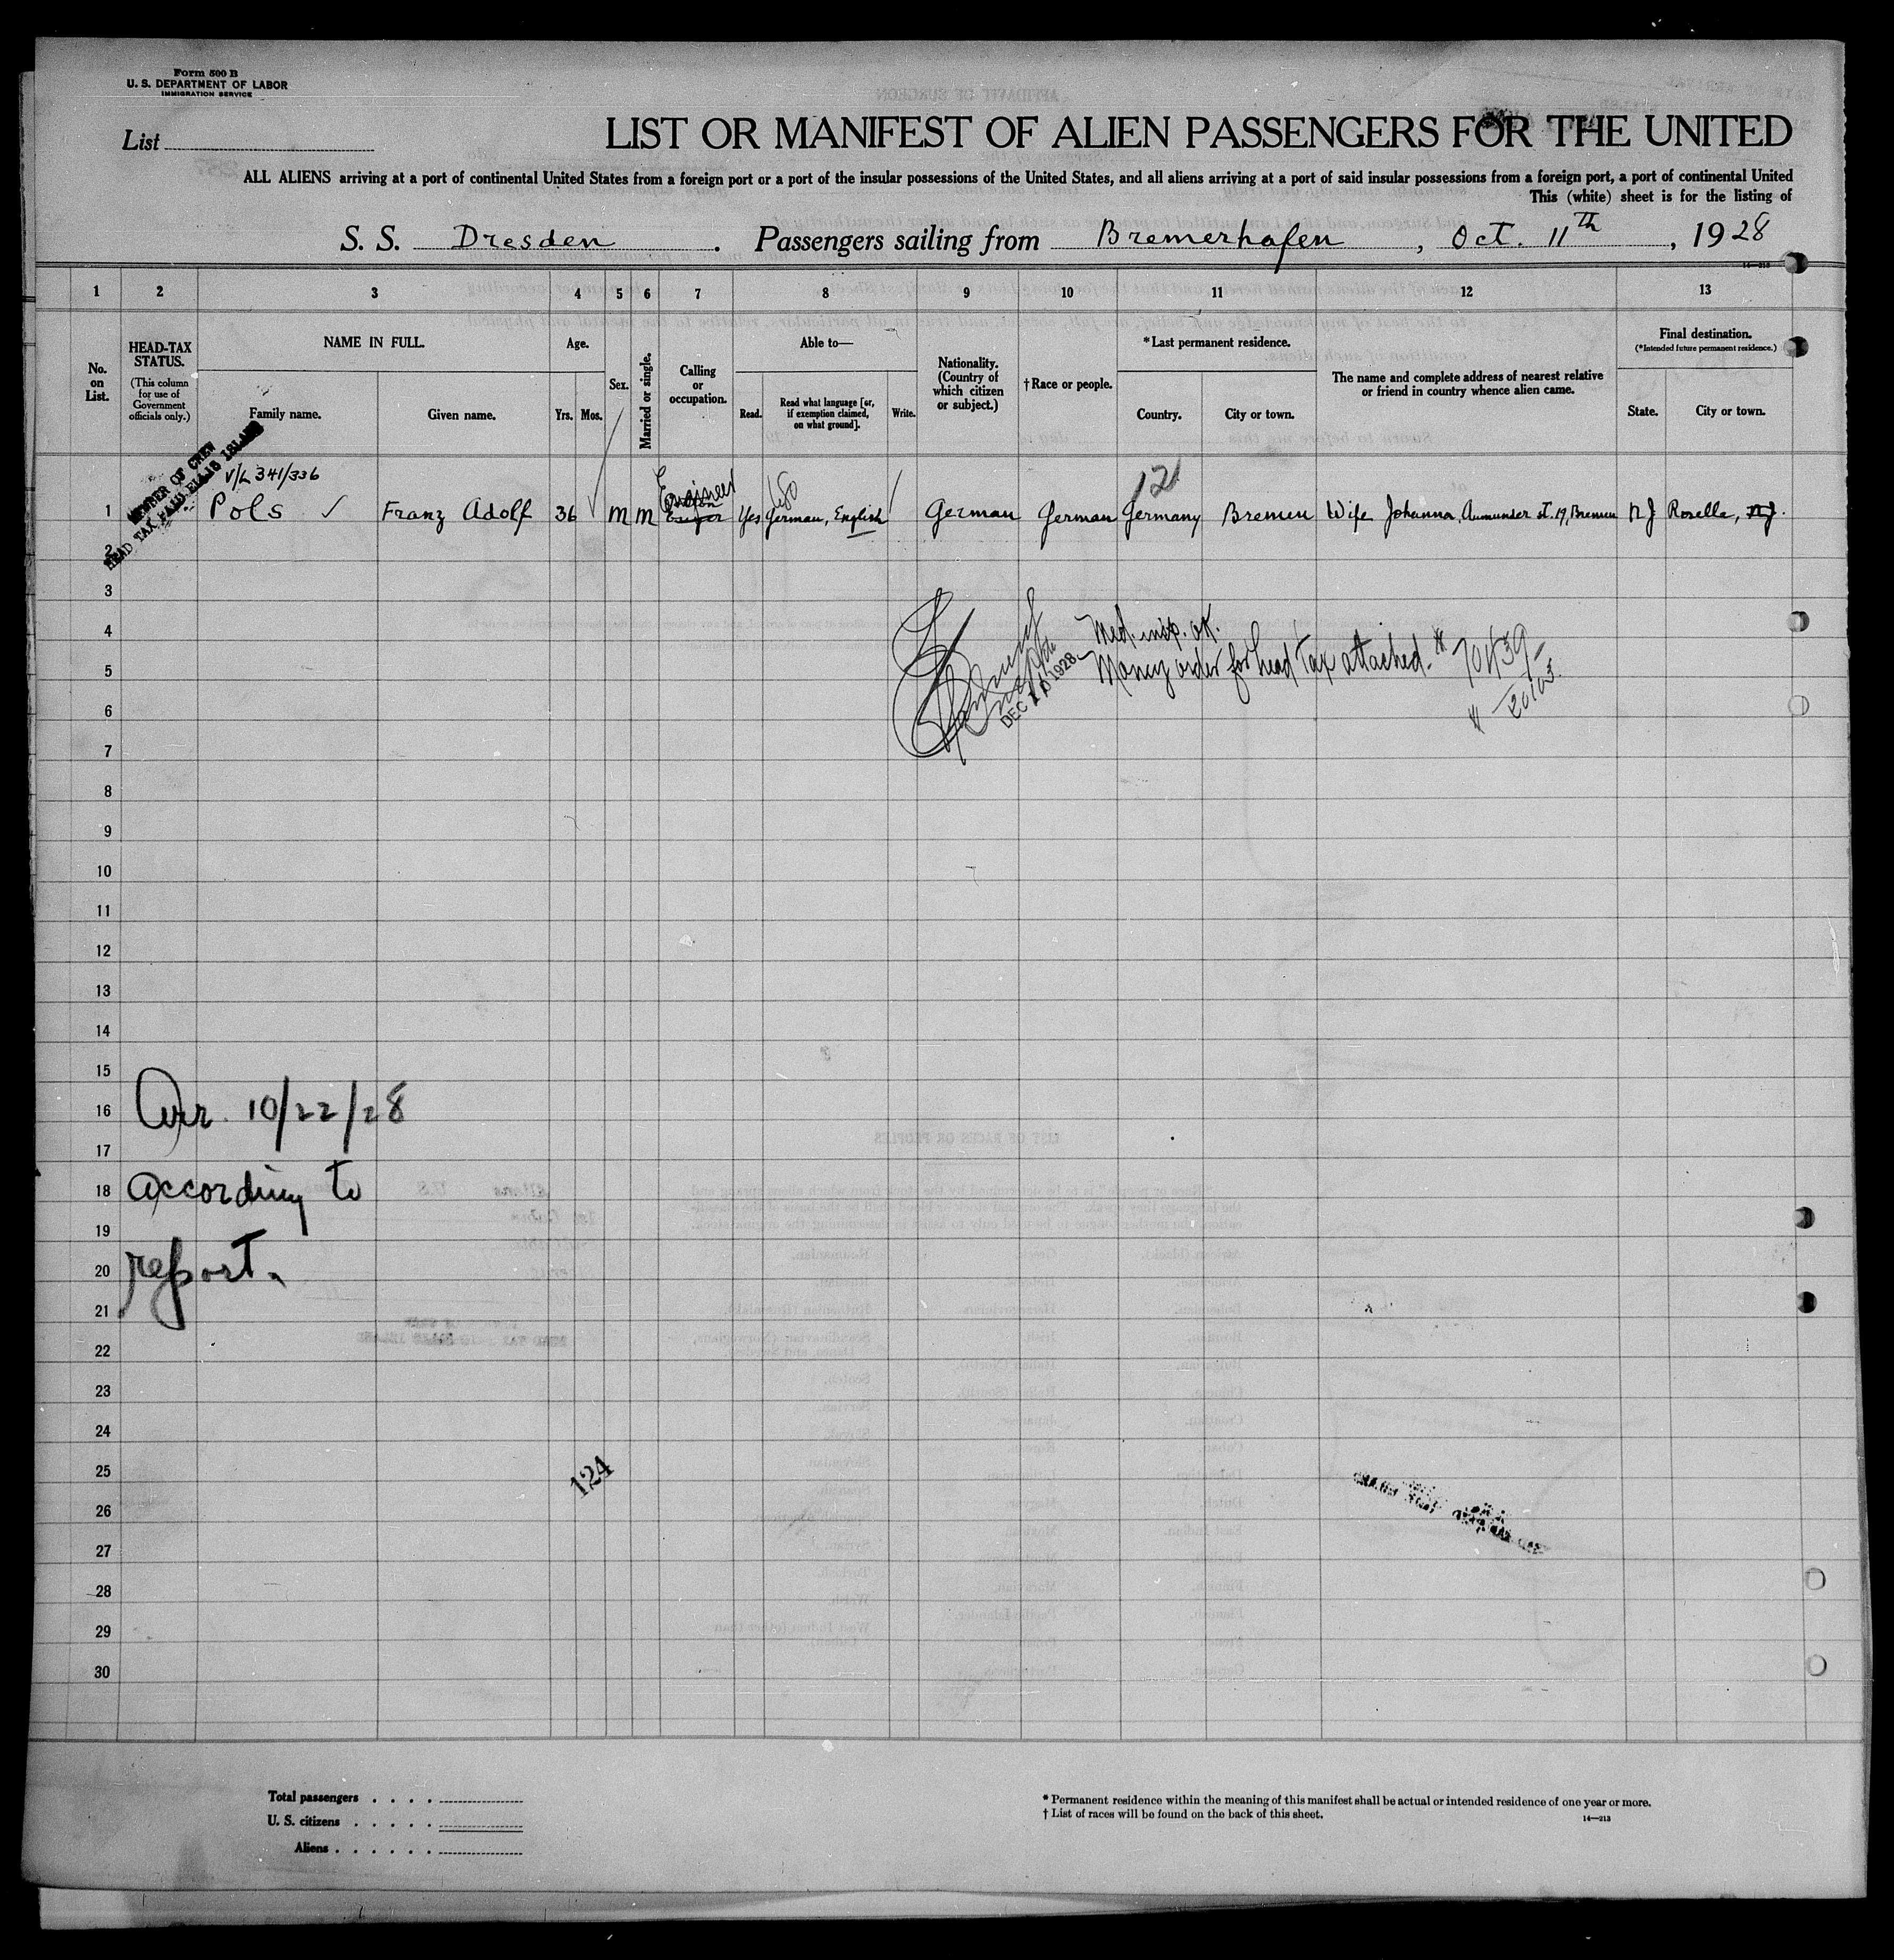 Form 500 B
U. S. DEPARTMENT OF LABOR
IMMIGRATION SERVICE
List
LIST OR MANIFEST OF ALIEN PASSENGERS FOR THE UNITED
ALL ALIENS arriving at a port of continental United States from a foreign port or a port of the insular possessions of the United States, and all aliens arriving at a port of said insular possessions from a foreign port, a port of continental United
This (white) sheet is for the listing of
S. S. Dresden. Passengers sailing from Bremerhafen, Oct. 11th, 1928
14—213
1 2 3 4 5 6 7 8 9 10 11 12 13
No. on List.
HEAD-TAX STATUS.
(This column for use of Government officials only.)
NAME IN FULL.
Family name.
Given name.
Age.
Yrs.
Mos.
Sex.
Married or single.
Calling or occupation.
Able to—
Read.
Read what language [or, if exemption claimed, on what ground].
Write.
Nationality. (Country of which citizen or subject.)
† Race or people.
* Last permanent residence.
Country.
City or town.
The name and complete address of nearest relative or friend in country whence alien came.
Final destination.
(* Intended future permanent residence.)
State.
City or town.
MEMBER OF CREW
HEAD TAX PAID ELLIS ISLAND
V/L 341/336
Engineer
121
1 Pols ✓ Franz Adolf 36 ✓ m m Yes German, English German German Germany Bremen Wife Johanna, Aumunder st. 19, Bremen N J Roselle, N.J.
2
3
4 Med. insp. ok.
5 Money order for head tax attached. # 70439
# 20103
DEC 10 1928
6
7
8
9
10
11
12
13
14
15
16 Arr. 10/22/28
17
18 according to
19
20 report.
21
22
23
24
25
124
26
27
28
29
30
Total passengers . . . .
U. S. citizens . . . . .
Aliens . . . . . .
* Permanent residence within the meaning of this manifest shall be actual or intended residence of one year or more.
† List of races will be found on the back of this sheet.
14—213